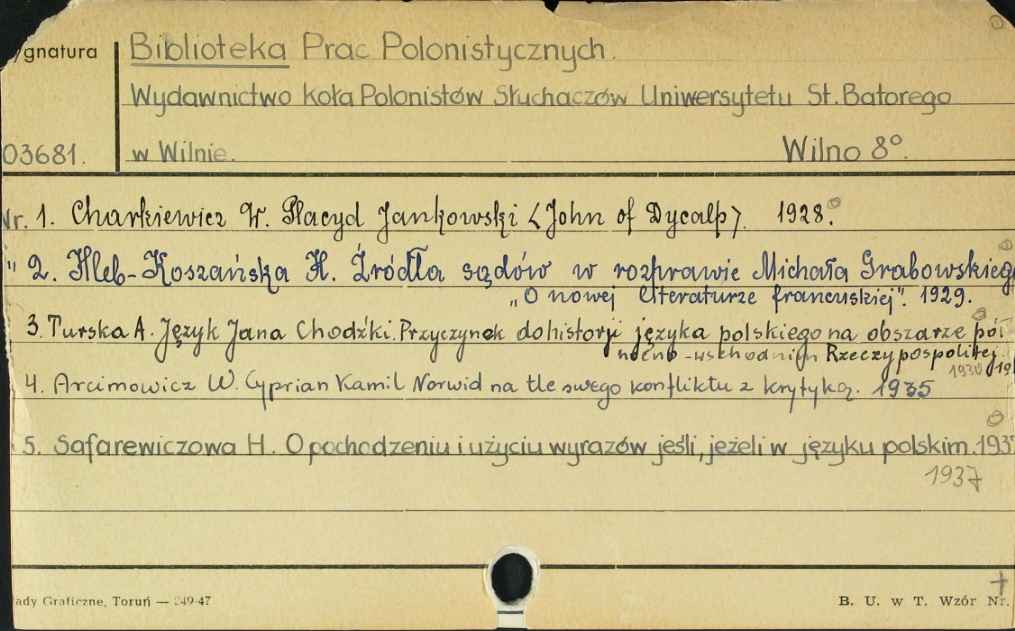 ygnatura
Biblioteka Prac Polonistycznych.
Wydawnictwo Koła Polonistów Słuchaczów Uniwersytetu St. Batorego
03681.
w Wilnie. Wilno 8°.
Nr. 1. Charkiewicz W. Placyd Jankowski (John of Dycalp). 1928.
" 2. Hleb-Koszańska H. Źródła sądów w rozprawie Michała Grabowskieg
„O nowej literaturze francuskiej". 1929.
3. Turska A. Język Jana Chodźki. Przyczynek do historji języka polskiego na obszarze pół
nocno-wschodnim Rzeczypospolitej.
1930
4. Arcimowicz W. Cyprian Kamil Norwid na tle swego konfliktu z krytyką. 1935
5. Safarewiczowa H. O pochodzeniu i użyciu wyrazów jeśli, jeżeli w języku polskim. 193
1937
ady Graficzne, Toruń — 249-47
B. U. w T. Wzór Nr.